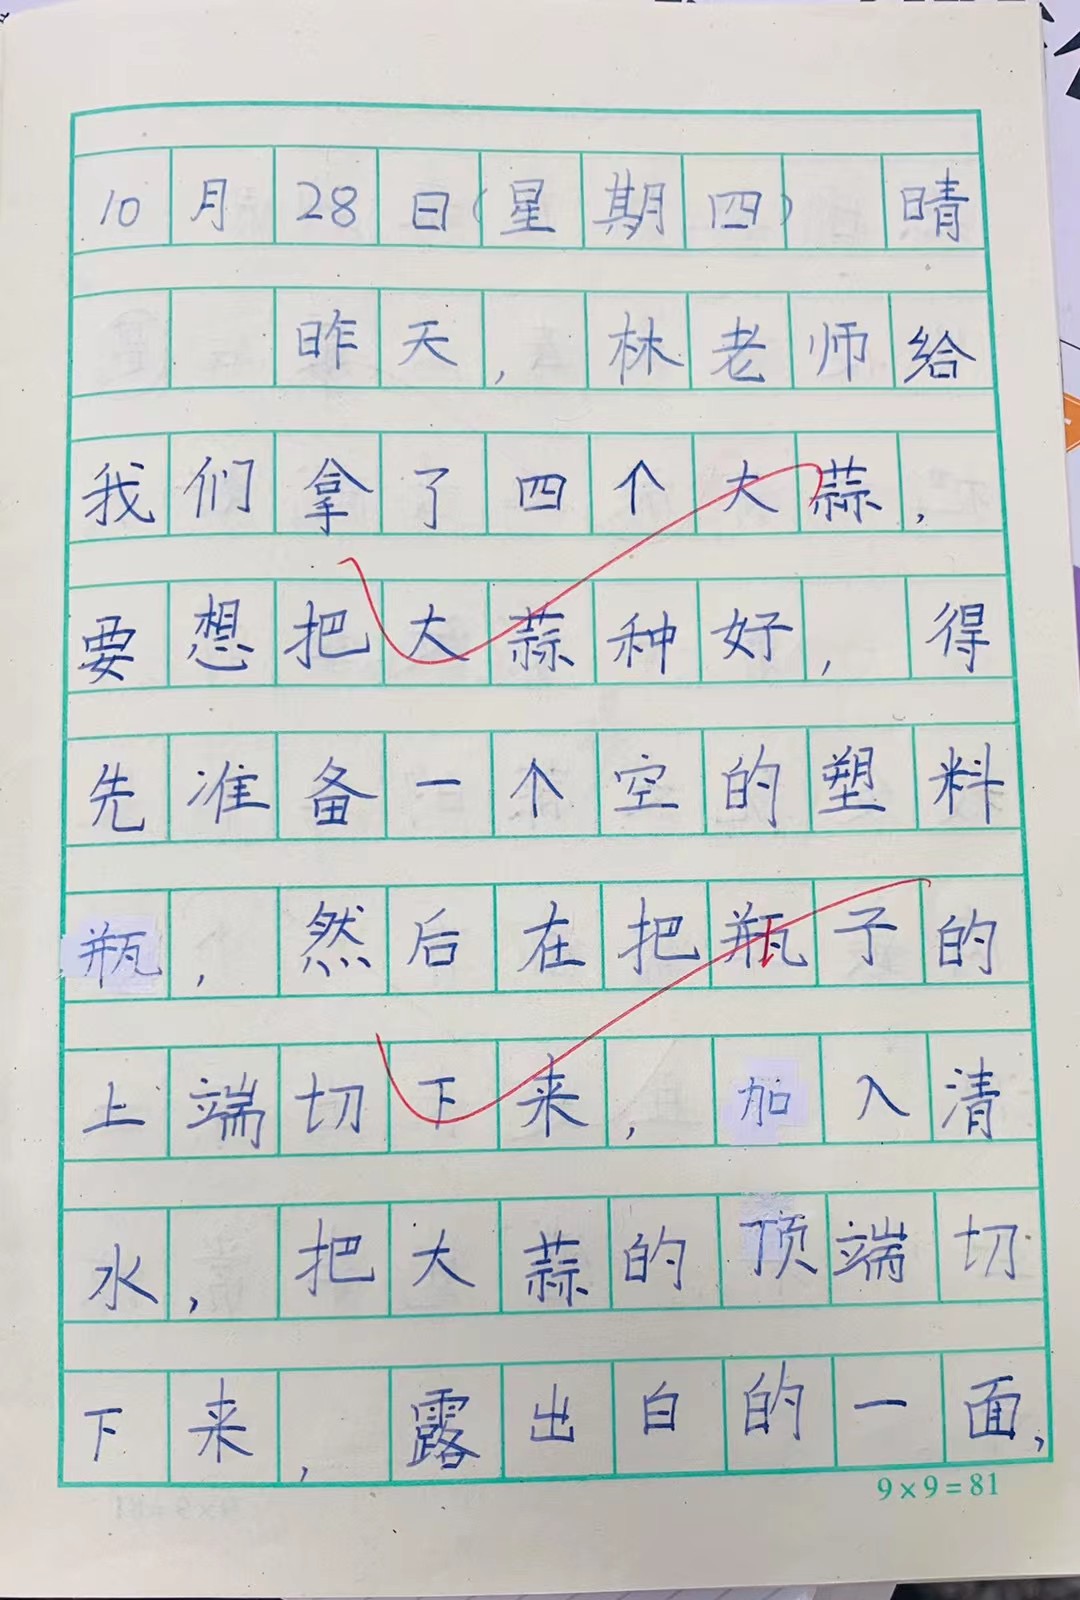 10月28日(星期四) 晴
昨天,林老师给
我们拿了四个大蒜,
要想把大蒜种好,得
先准备一个空的塑料
瓶,然后在把瓶子的
上端切下来,加入清
水,把大蒜的顶端切
下来,露出白的一面,
9×9=81